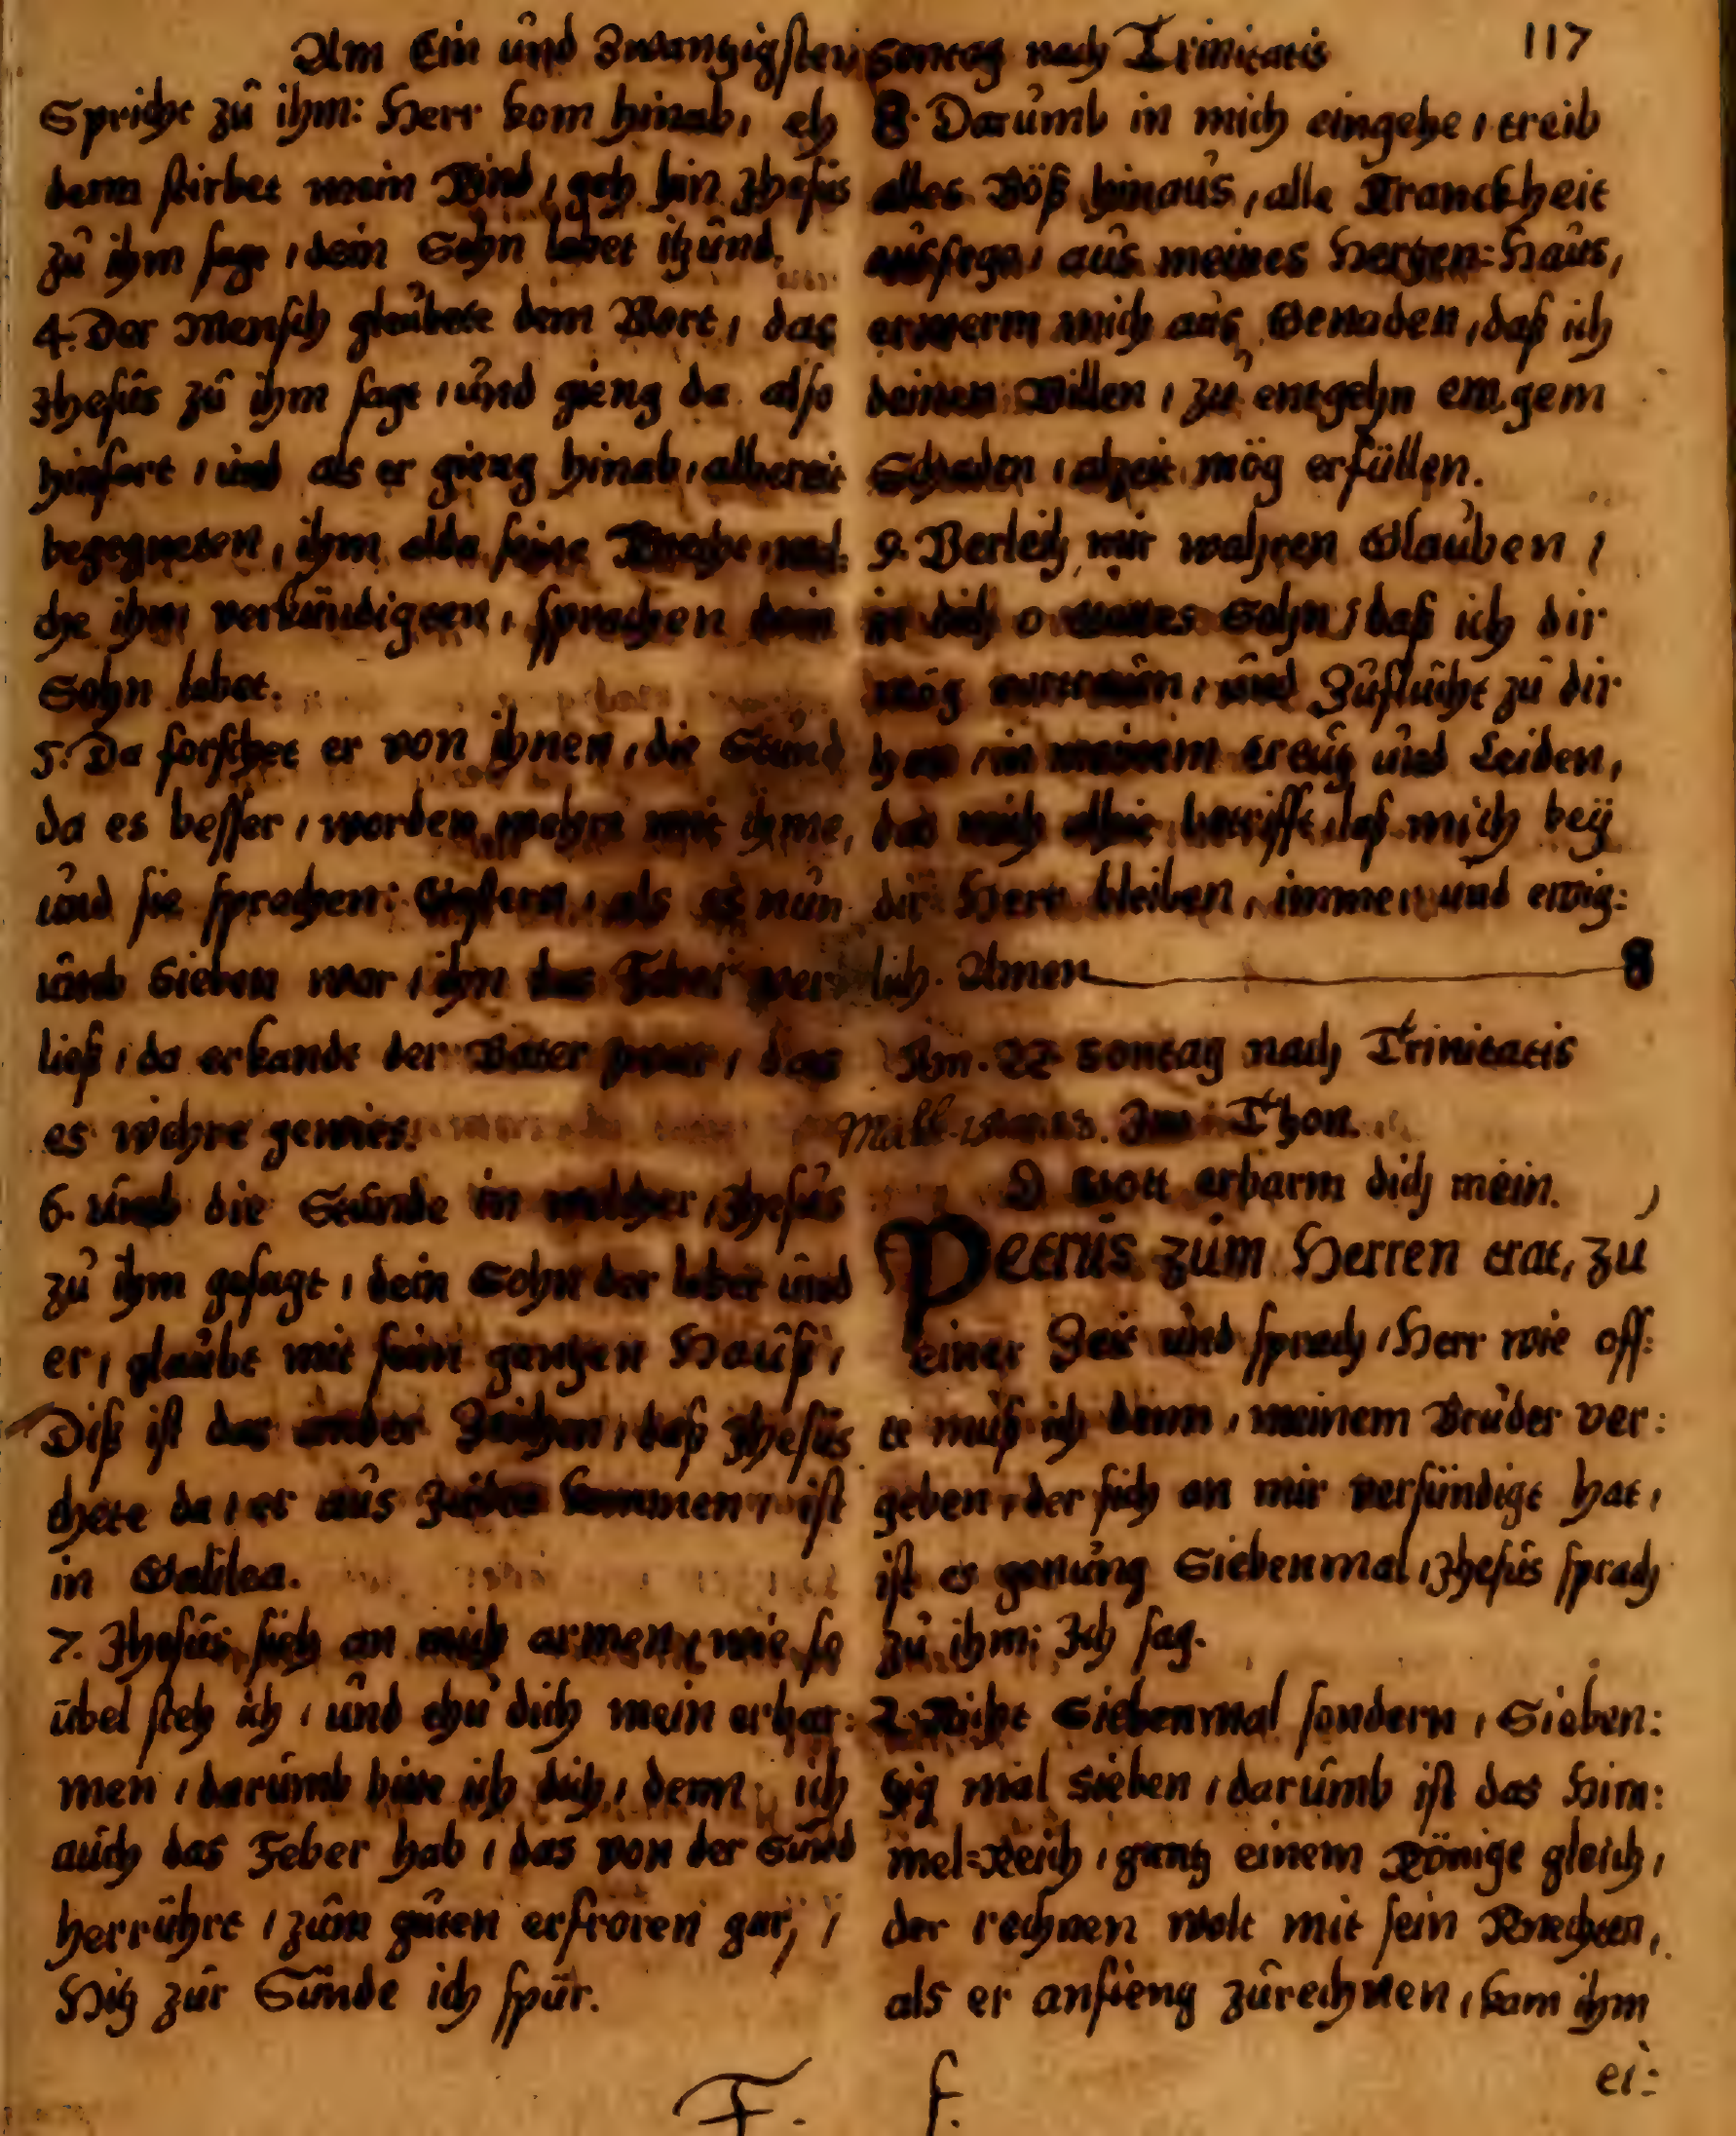 Am Ein und Zwantzigsten Sontag nach Trinitatis 117
Spricht zu ihm: Herr kom hinab, eh
denn stirbet mein Kind, geh hin Jhesus
zu ihm sagt, dein Sohn lebet itzund.
4. Der Mensch gleubete dem Wort, das
Jhesus zu ihm sagt, und gieng da also
hinfort, und als er gieng hinab, albereit
begegneten, ihm alda seine Knechte, wel:
che ihm verkündigten, sprachen dein
Sohn lebet.
5. Da forschet er von ihnen, die Stund
da es besser, worden wehre mit ihme,
und sie sprachen: Gestern, als es nun
umb Sieben war, ihn das Feber ver
ließ, da erkande der Vater zwar, das
es wehre gewies.
6. umb die Stunde in welcher, Jhesus
zu ihm gesagt, dein Sohn der lebet und
er, glaubt mit seim gantzen Hauß,
Diß ist das ander Zeichen, daß Jhesus
thete da, er aus Judea kommen, ist
in Galilea.
7. Jhesus sieh an mich armen, wie so
übel steh ich, und thu dich mein erbar:
men, darumb bitte ich dich, denn ich
auch das Feber hab, das von der Sünd
herrührt, zum guten erfroren gar,
Hitz zur Sünde ich spür.
8. Darumb in mich eingehe, treib
alles Böß hinaus, alle Kranckheit
ausfege, aus meines Hertzen-Haus,
erwerm mich aus Genaden, daß ich
deinen Willen, zu entgehn ewgem
Schaden, alzeit mög erfüllen.
9. Verleih mir wahren Glauben,
in dich o Gottes Sohn, daß ich dir
mög vertraun, und Zuflucht zu dir
han, in meinem Creutz und Leiden,
das mich alhie betrifft, laß mich bey
dir Herr bleiben, immer und ewig:
lich. Amen
Am. 22 Sontag nach Trinitatis
Im Thon.
O Gott erbarm dich mein.
Petrus zum Herren trat, zu
einer Zeit und sprach, Herr wie off:
te muß ich denn, meinem Bruder ver:
geben, der sich an mir versündigt hat,
ist es genung Siebenmal, Jhesus sprach
zu ihm: Ich sag.
2. Nicht Siebenmal sondern, Sieben:
tzig mal sieben, darumb ist das Him:
mel-Reich, gantz einem Könige gleich,
der rechnen wolt mit sein Knechten,
als er anfieng zurechnen, kam ihm
ei:
F. f.